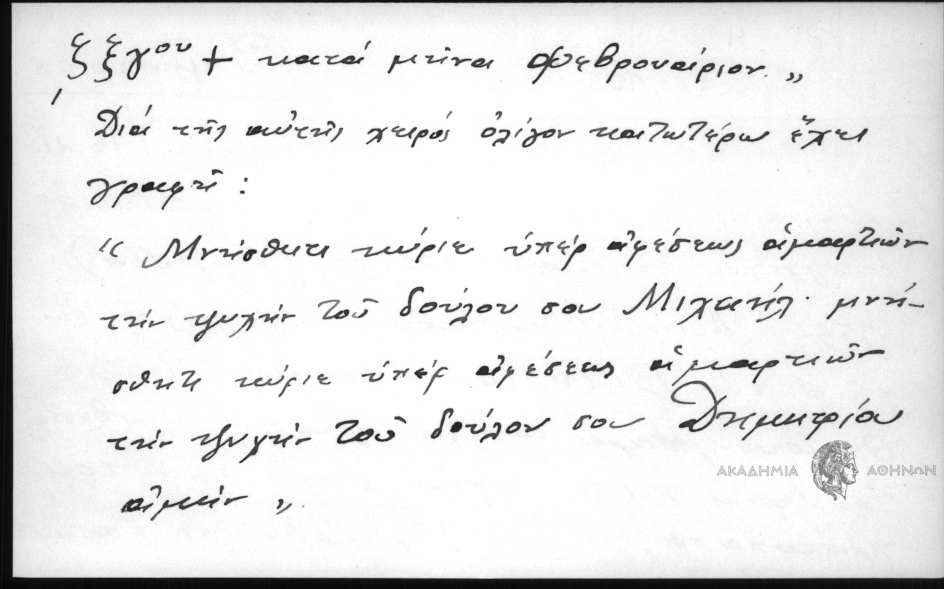 ͵ξξγου + κατά μῆνα Φεβρουάριον „
Διά τῆς αὐτῆς χειρός ὀλίγον κατωτέρω ἔχει
γραφῆ :
“ Μνήσθητι κύριε ὑπέρ ἀφέσεως ἁμαρτιῶν
τήν ψυχήν τοῦ δούλου σου Μιχαήλ · μνή-
σθητι κύριε ὑπέρ ἀφέσεως ἁμαρτιῶν
τήν ψυχήν τοῦ δούλου σου Δημητρίου
ἀμήν „.
ΑΚΑΔΗΜΙΑ ΑΘΗΝΩΝ